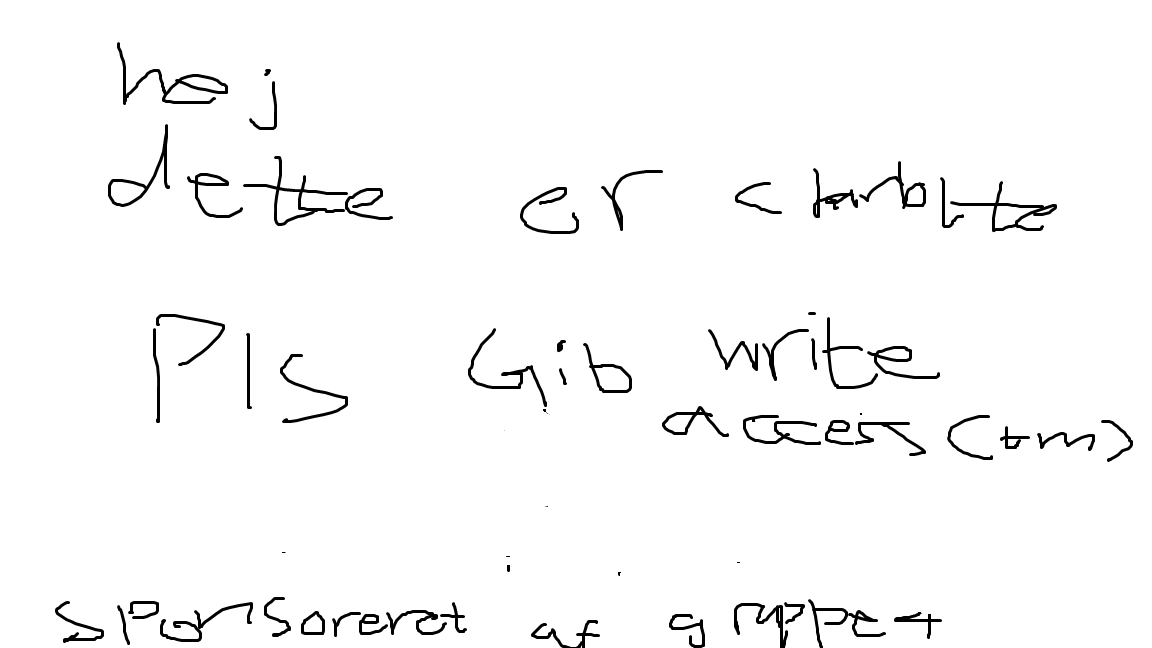 hej
dette er
Pls Gib write
access (tm)
Sponsoreret af